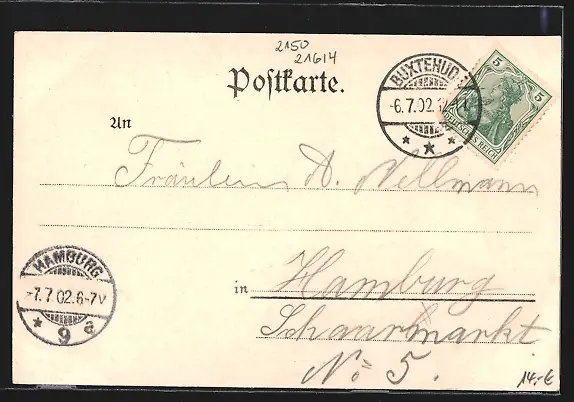 2150
21614
Postkarte.
BUXTEHUDE
-6.7.02.12-1
5 5
DEUTSCHES REICH
An
Fräulein A. Wellmann
HAMBURG
-7.7.02.6-7V
* 9 a
in Hamburg
Schaarmarkt
No: 5.
14.-€